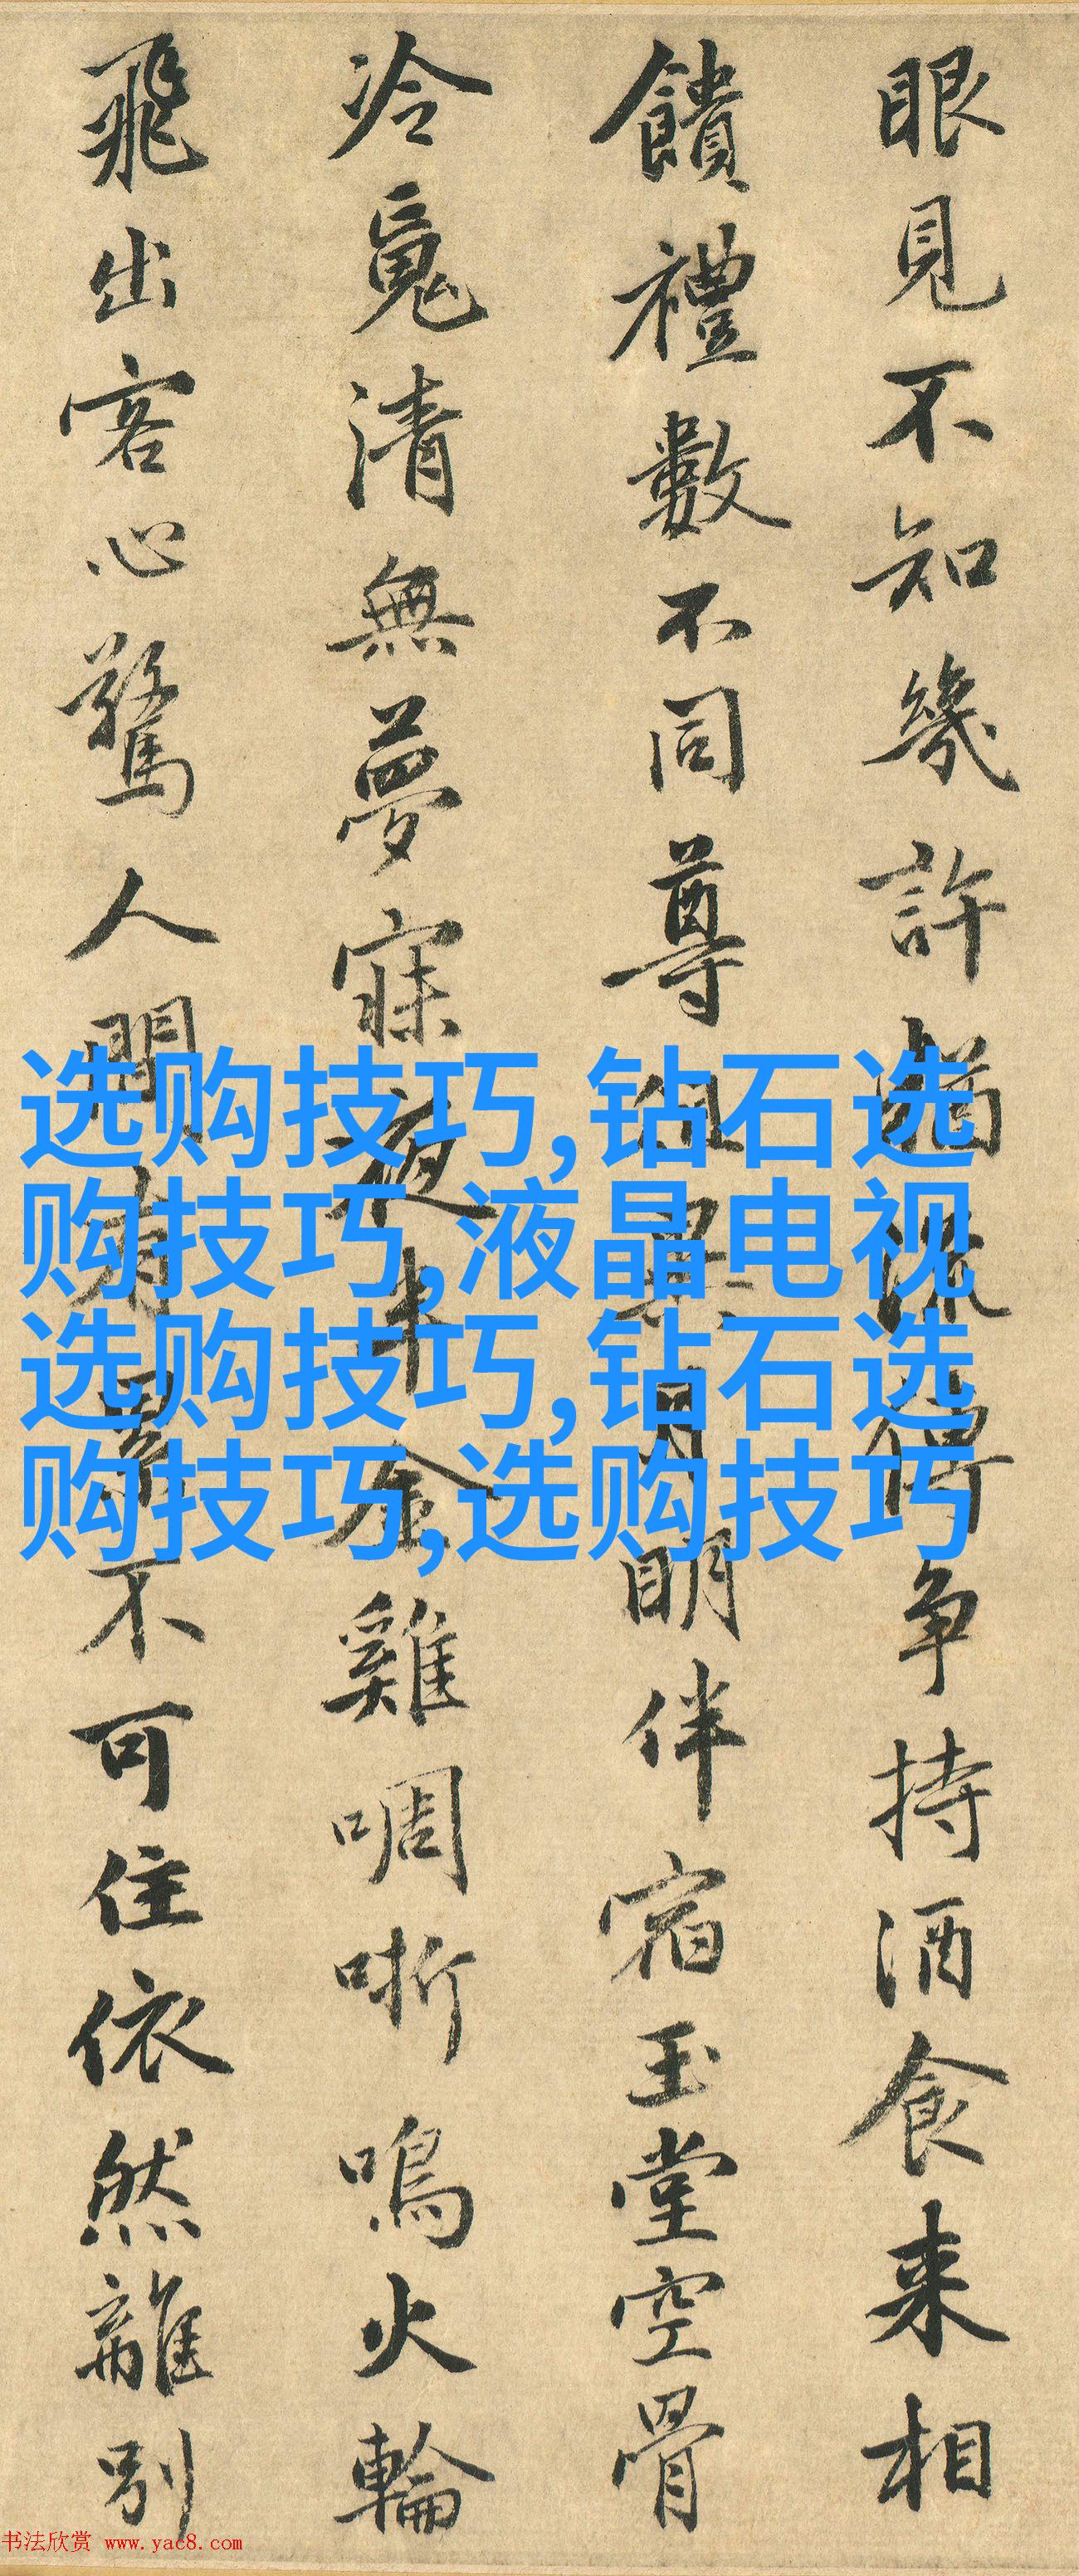 眼見不知幾許猶流傳争持酒食来相
饋禮數不同尊俎異月明伴宿玉堂空骨
冷魂清無夢寐夜半金雞啁哳鳴火輪
飛出客心驚人間有累不可住依然離別
选购技巧,钻石选
购技巧,液晶电视
选购技巧,钻石选
购技巧,选购技巧
书法欣赏 www.yac8.com